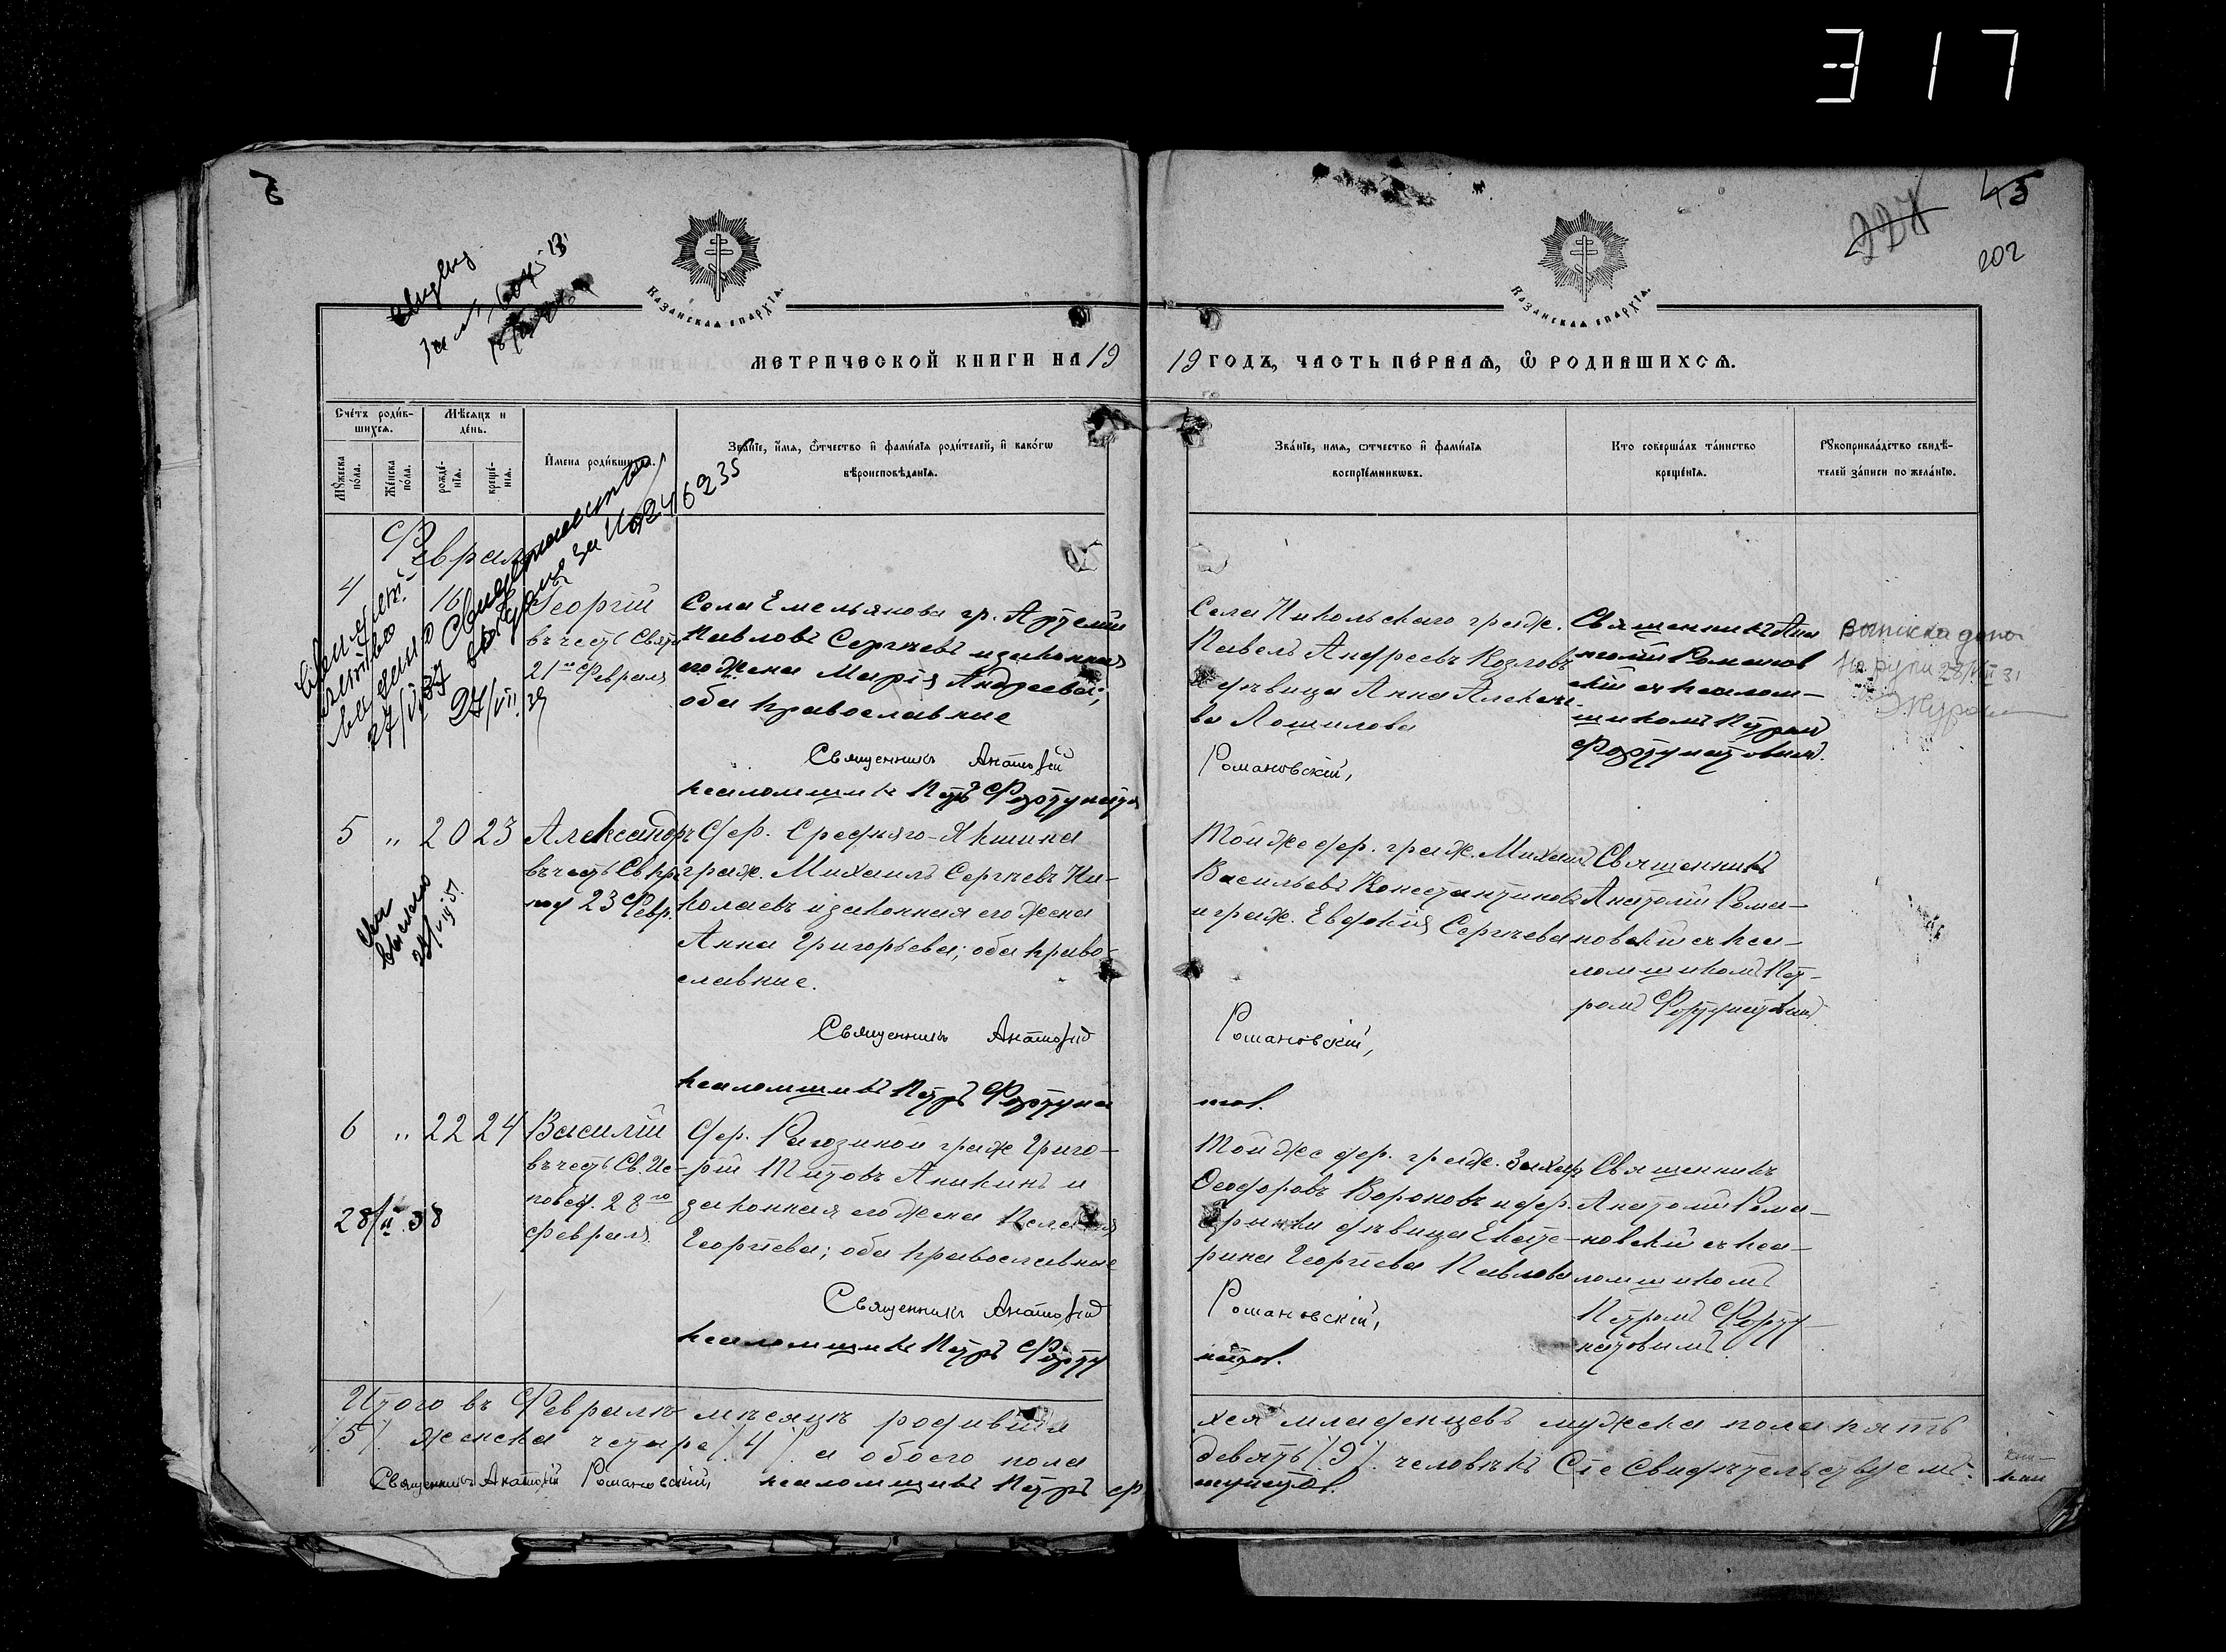 317
45
227
202
Казанская епархїа.
Казанская епархїа.
МЕТРИЧЕСКОЙ КНИГИ НА 19
19 ГОДЪ, ЧАСТЬ ПЕРВАЯ, Ѿ РОДИВШИХСЯ.
Счётъ родив-
шихся.
Мѣсяцъ и
день.
Мужеска
пола.
Женска
пола.
рожде-
нія.
креще-
нія.
Имена родившихся.
Званіе, имя, ѿчество и фамилія родителей, и какогѡ
вѣроисповѣданія.
Званіе, имя, ѿчество и фамилія
воспріемникѡвъ.
Кто совершалъ таинство
крещенія.
Рукоприкладство свидѣ-
телей записи по желанію.
Февраль
4 16
Георгій
въ честь Свят.
21го Февраля
Села Емельянова гр. Артемій
Павловъ Сергѣевъ и законная
его жена Марія Андреева;
оба православные
Священникъ Анатолій
псаломщикъ Петръ Фортунатов
Села Никольскаго граж.
Павелъ Андреевъ Козловъ
и дѣвица Анна Алексѣе-
ва Лошилова
Романовскій,
Священникъ Ана
толій Романов
скій съ псалом-
щикомъ Петромъ
Фортунатовымъ.
27/VII 39
5 " 20 23
Александръ
въ честь Св. пр.
под 23 Февр.
Дер. Средняго-Якшина
граж. Михаилъ Сергѣевъ Ни-
колаевъ и законная его жена
Анна Григорьева; оба право-
славные.
Священникъ Анатолій
псаломщикъ Петръ Фортуна
Той же дер. граж. Михаилъ
Васильевъ Константиновъ
и граж. Евдокія Сергѣева
Романовскій,
тов.
Священникъ
Анатолій Рома-
новскій съ пса-
ломщикомъ Пет-
ромъ Фортунатовымъ
6 " 22 24
Василій
въ честь Св. Ис-
повѣд. 28го
Февраля.
28/II.38
Дер. Рагозиной граж Григо-
рій Титовъ Аникинъ и
законная его жена Пелагія
Георгіева; оба православные
Священникъ Анатолій
псаломщикъ Петръ Форту
Той же дер. граж. Захар
Ѳеодоровъ Вороновъ и дер.
дѣвица Екате-
рина Георгіева Павлова
Романовскій,
натов.
Священникъ
Анатолій Рома-
новскій съ пса-
ломщикомъ
Петромъ Форту-
натовымъ
Итого въ Февралѣ мѣсяцѣ родивши
хся младенцевъ мужеска пола пять
/.5/. женска четыре /.4/. а обоего пола
девять /.9/. человѣкъ Сіе Свидѣтельствуемъ:
Священникъ Анатолій Романовскій, псаломщикъ Петръ Фор
тунатов.